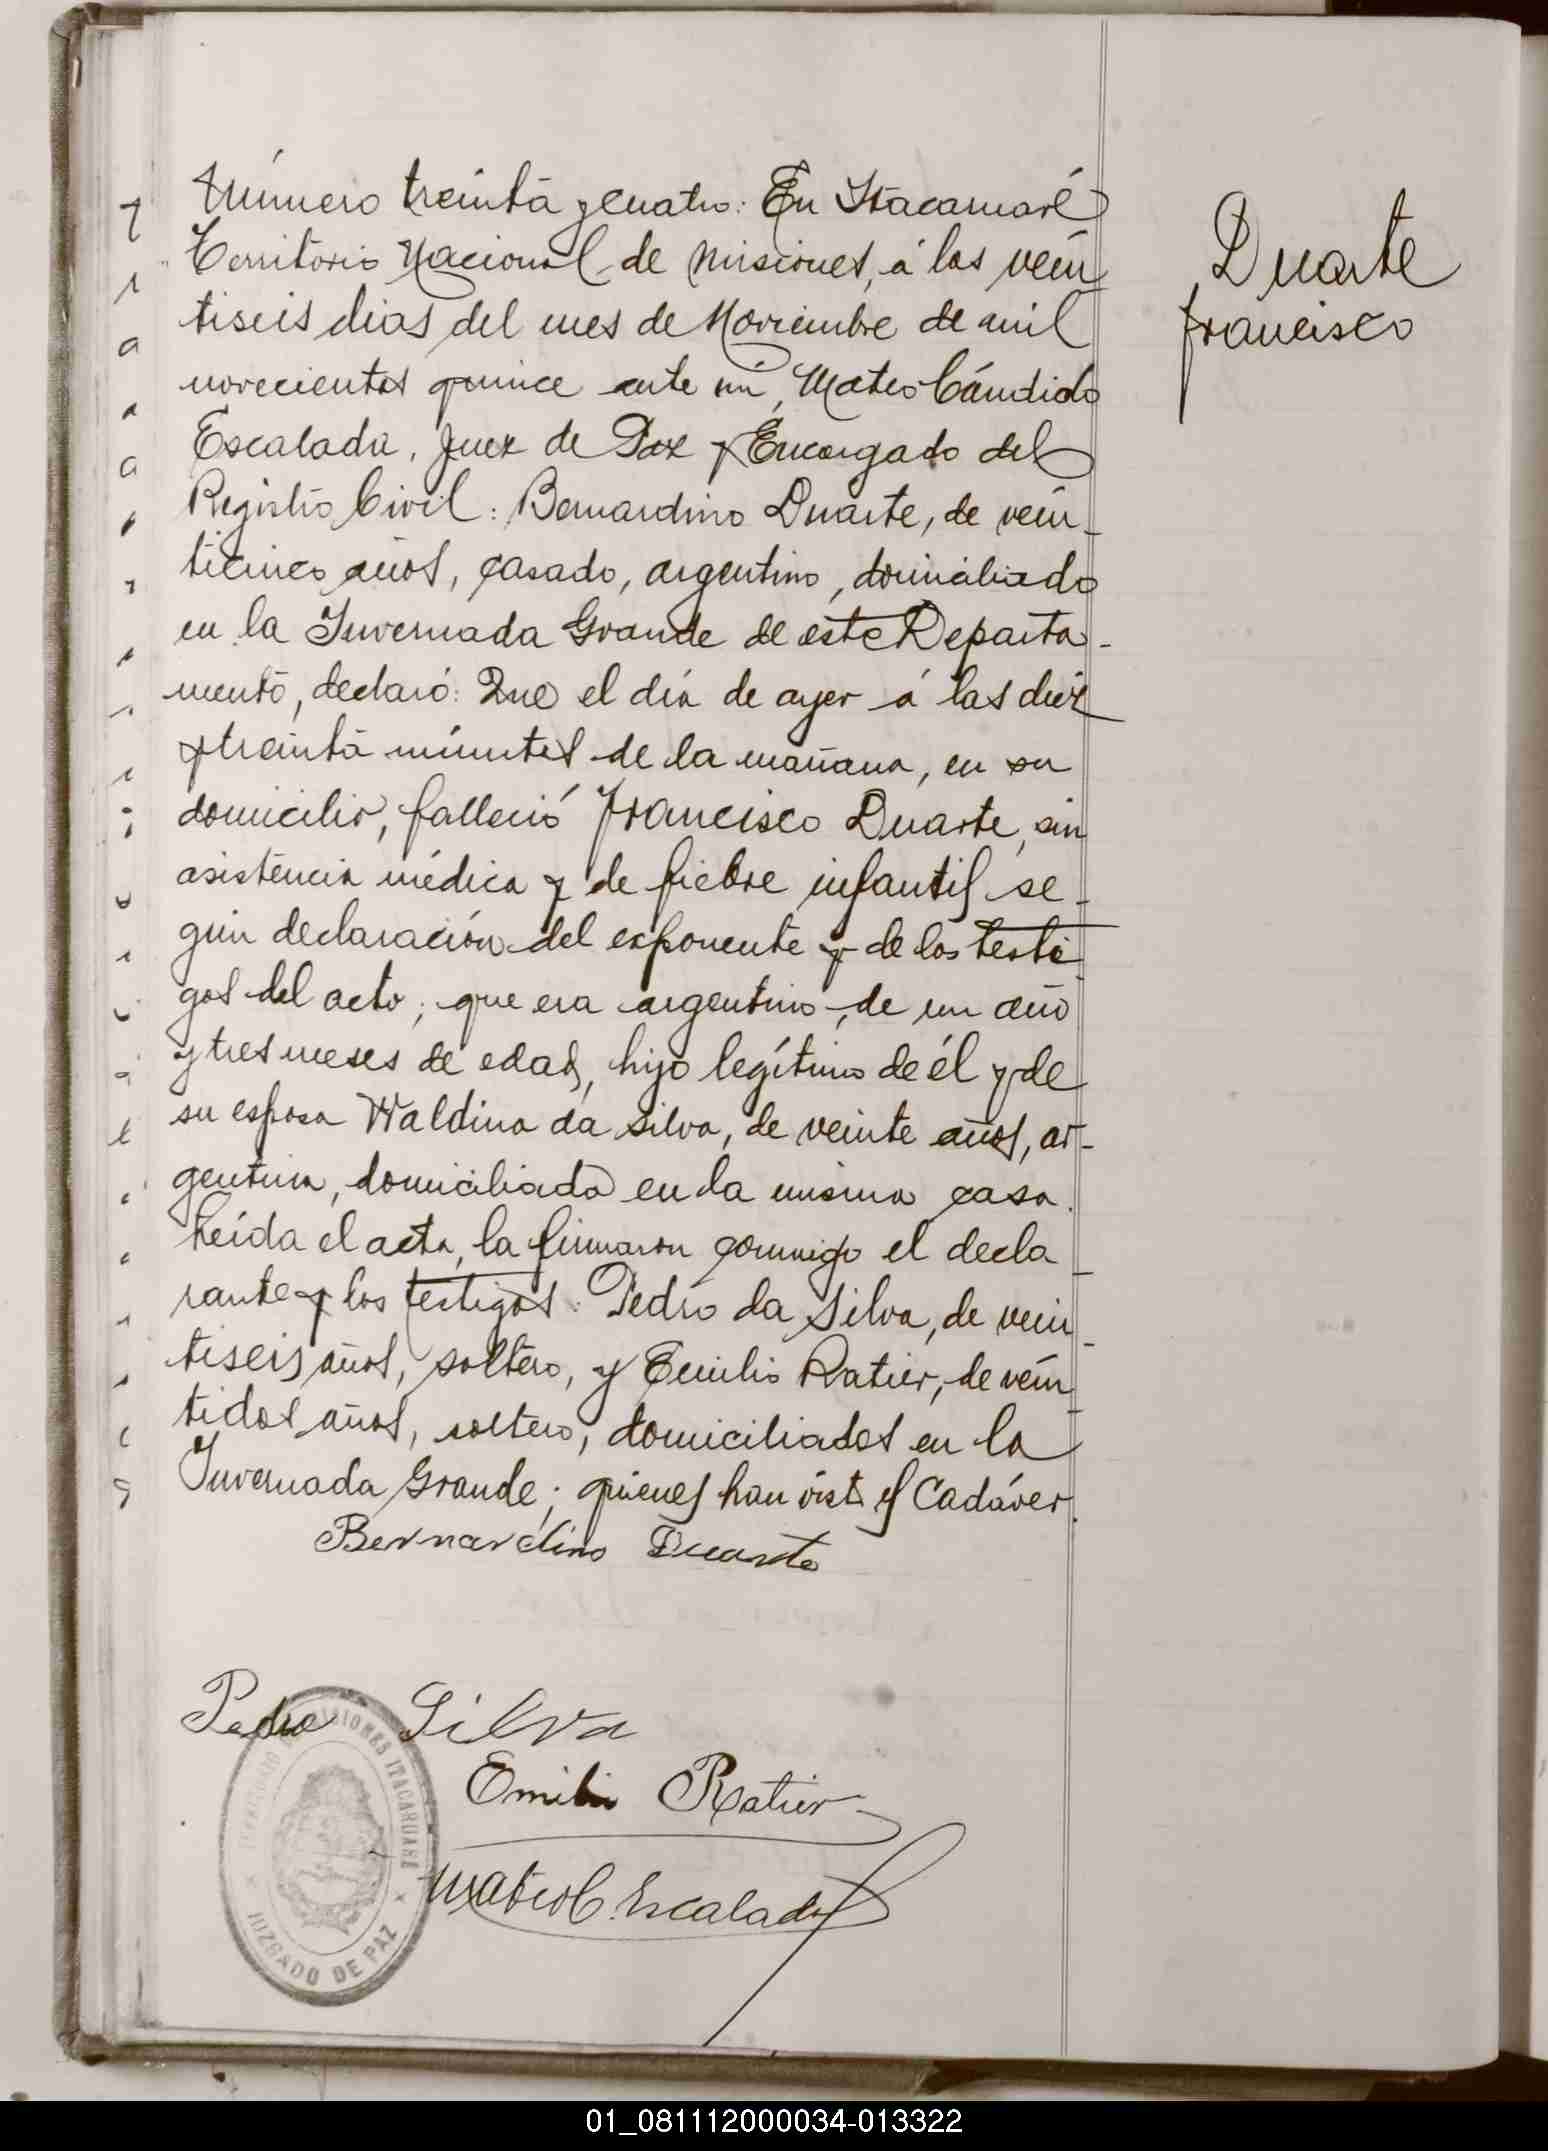 Número treinta y cuatro: En Itacaruaré
Territorio Nacional de Misiones, á los vein
tiseis dias del mes de Noviembre de mil
novecientos quince ante mi, Mateo Cándido
Escalada, Juez de Paz y Encargado del
Registro Civil: Bernardino Duarte, de vein-
ticinco años, casado, argentino, domiciliado
en la Invernada Grande de este Departa-
mento, declaró: Que el día de ayer á las diez
y treinta minutos de la mañana, en su
domicilio, falleció Francisco Duarte, sin
asistencia médica y de fiebre infantil se-
gún declaración del exponente y de los testi
gos del acto; que era argentino, de un año
y tres meses de edad, hijo legítimo de él y de
su esposa Waldina da Silva, de veinte años, ar-
gentina, domiciliada en la misma casa.
Leída el acta, la firmaron conmigo el decla
rante y los testigos: Pedro da Silva, de vein-
tiseis años, soltero, y Emilio Ratier, de vein
tidos años, soltero, domiciliados en la
Invernada Grande; quienes han visto el Cadáver.
Duarte
Francisco
Bernardino Duarte
Pedro Silva
Emilio Ratier
Mateo C. Escalada
MISIONES ITACARUARÉ
JUZGADO DE PAZ
01_081112000034-013322